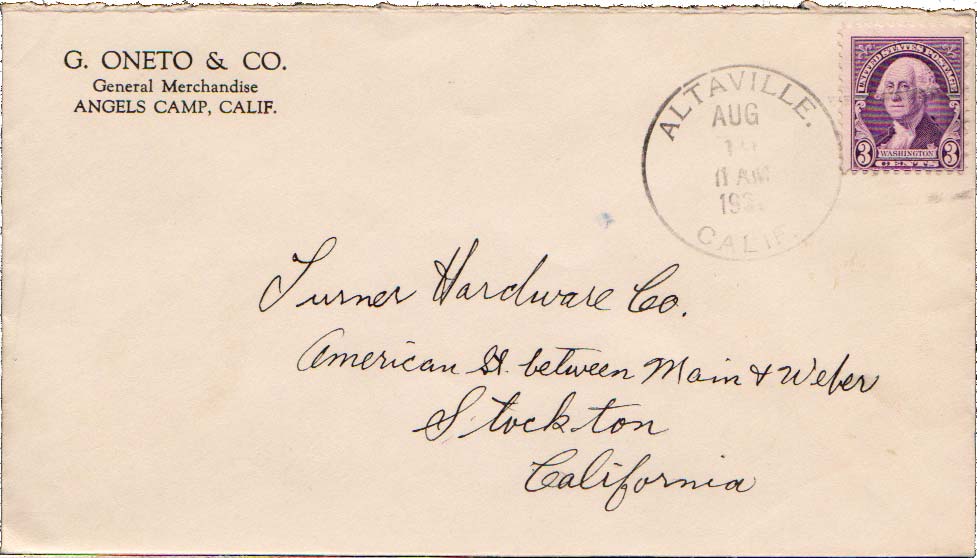 G. ONETO & CO.
General Merchandise
ANGELS CAMP, CALIF.
ALTAVILLE.
AUG
11 AM
CALIF.
UNITED STATES POSTAGE
3 WASHINGTON 3
CENTS
Turner Hardware Co.
American St. between Main & Weber
Stockton
California